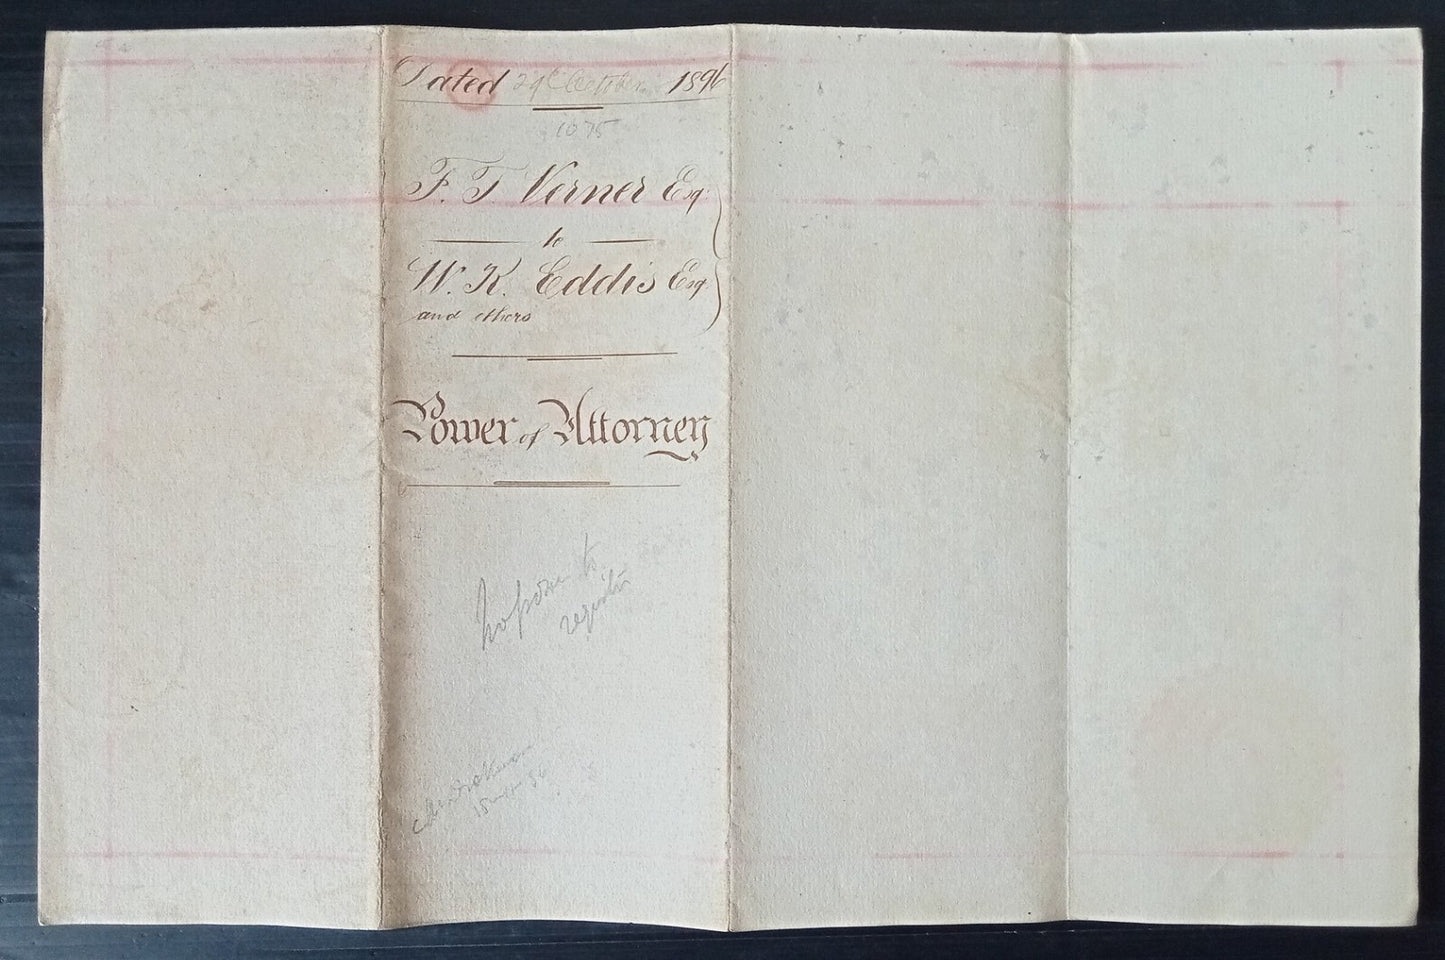 Dated 29th October 1896
1075
F. T. Verner Esq.
to
W. K. Eddis Esq.
and others
Power of Attorney
to
register